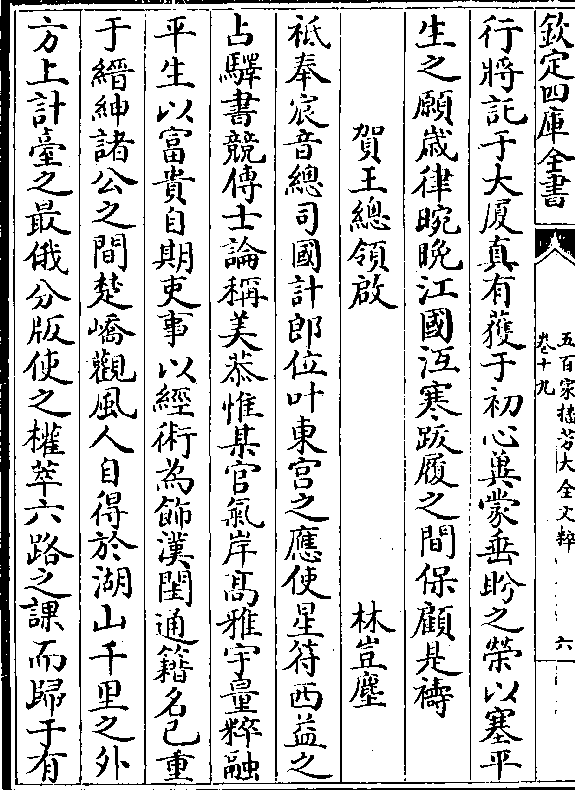 欽定四庫全書
五百家播芳大全文粹
卷十九
六
行將託于大厦真有獲于初心冀蒙垂盻之榮以塞平
生之願歳律晼晚江國冱寒跋履之間保顧是禱
賀王總領啟
林豈塵
祗奉宸音總司國計郎位叶東宮之應使星符西益之
占驛書競傳士論稱美恭惟某官氣岸髙雅宇量粹融
平生以富貴自期吏事以經術為飾漢閨通籍名已重
于縉紳諸公之間楚嶠觀風人自得於湖山千里之外
方上計臺之最俄分版使之權萃六路之課而歸于有